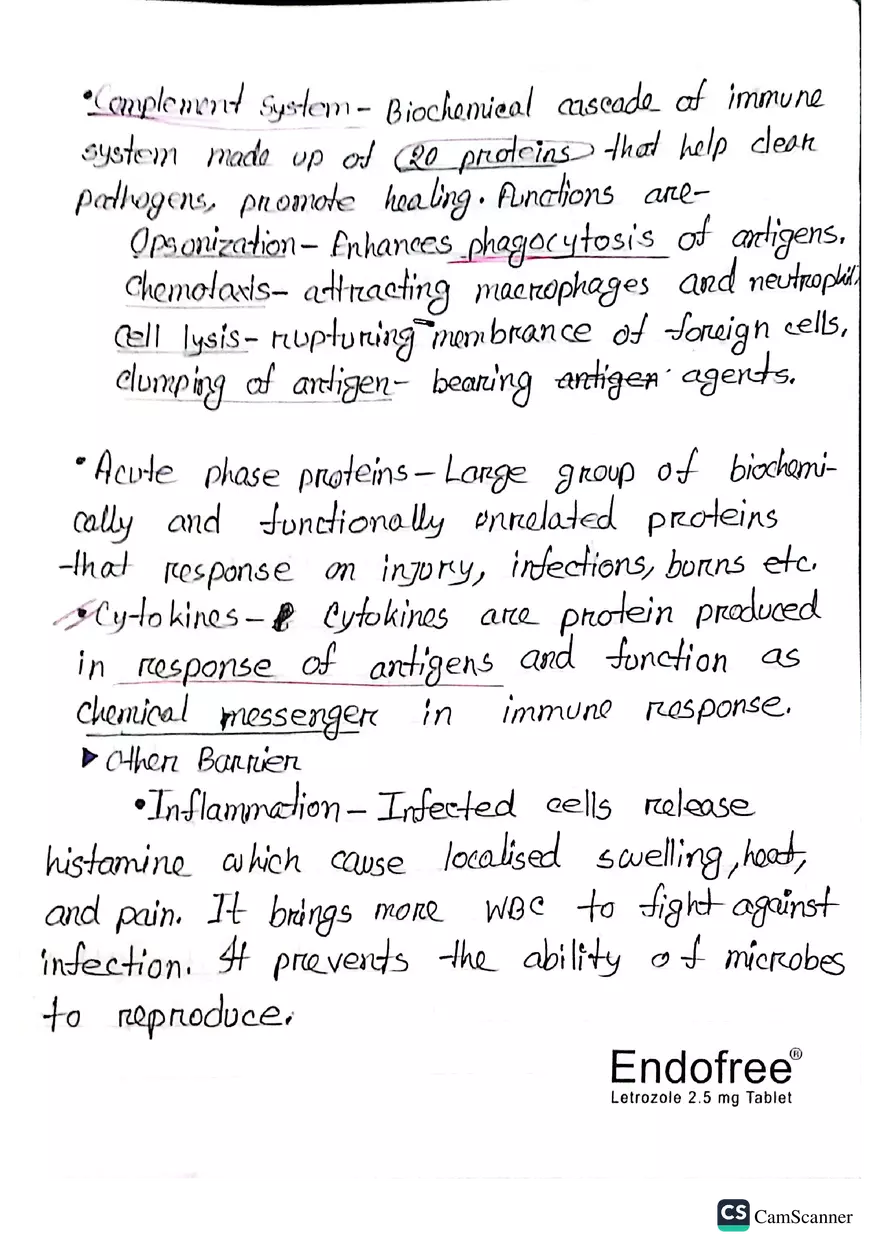 •Complement system – Biochemical cascade of immune
system made up of (20 proteins) that help clear
pathogens, promote healing. Functions are–
Opsonization – Enhances phagocytosis of antigens.
Chemotaxis – attracting macrophages and neutrophil
Cell lysis – rupturing membrance of foreign cells.
clumping of antigen – bearing antigen agents.
•Acute phase proteins – Large group of biochemi-
cally and functionally unrelated proteins
that response on injury, infections, burns etc.
•Cytokines – Cytokines are protein produced
in response of antigens and function as
chemical messenger in immune response.
▶ Other Barrier
•Inflammation – Infected cells release
histamine which cause localised swelling, heat,
and pain. It brings more WBC to fight against
infection. It prevents the ability of microbes
to reproduce.
Endofree®
Letrozole 2.5 mg Tablet
CS CamScanner